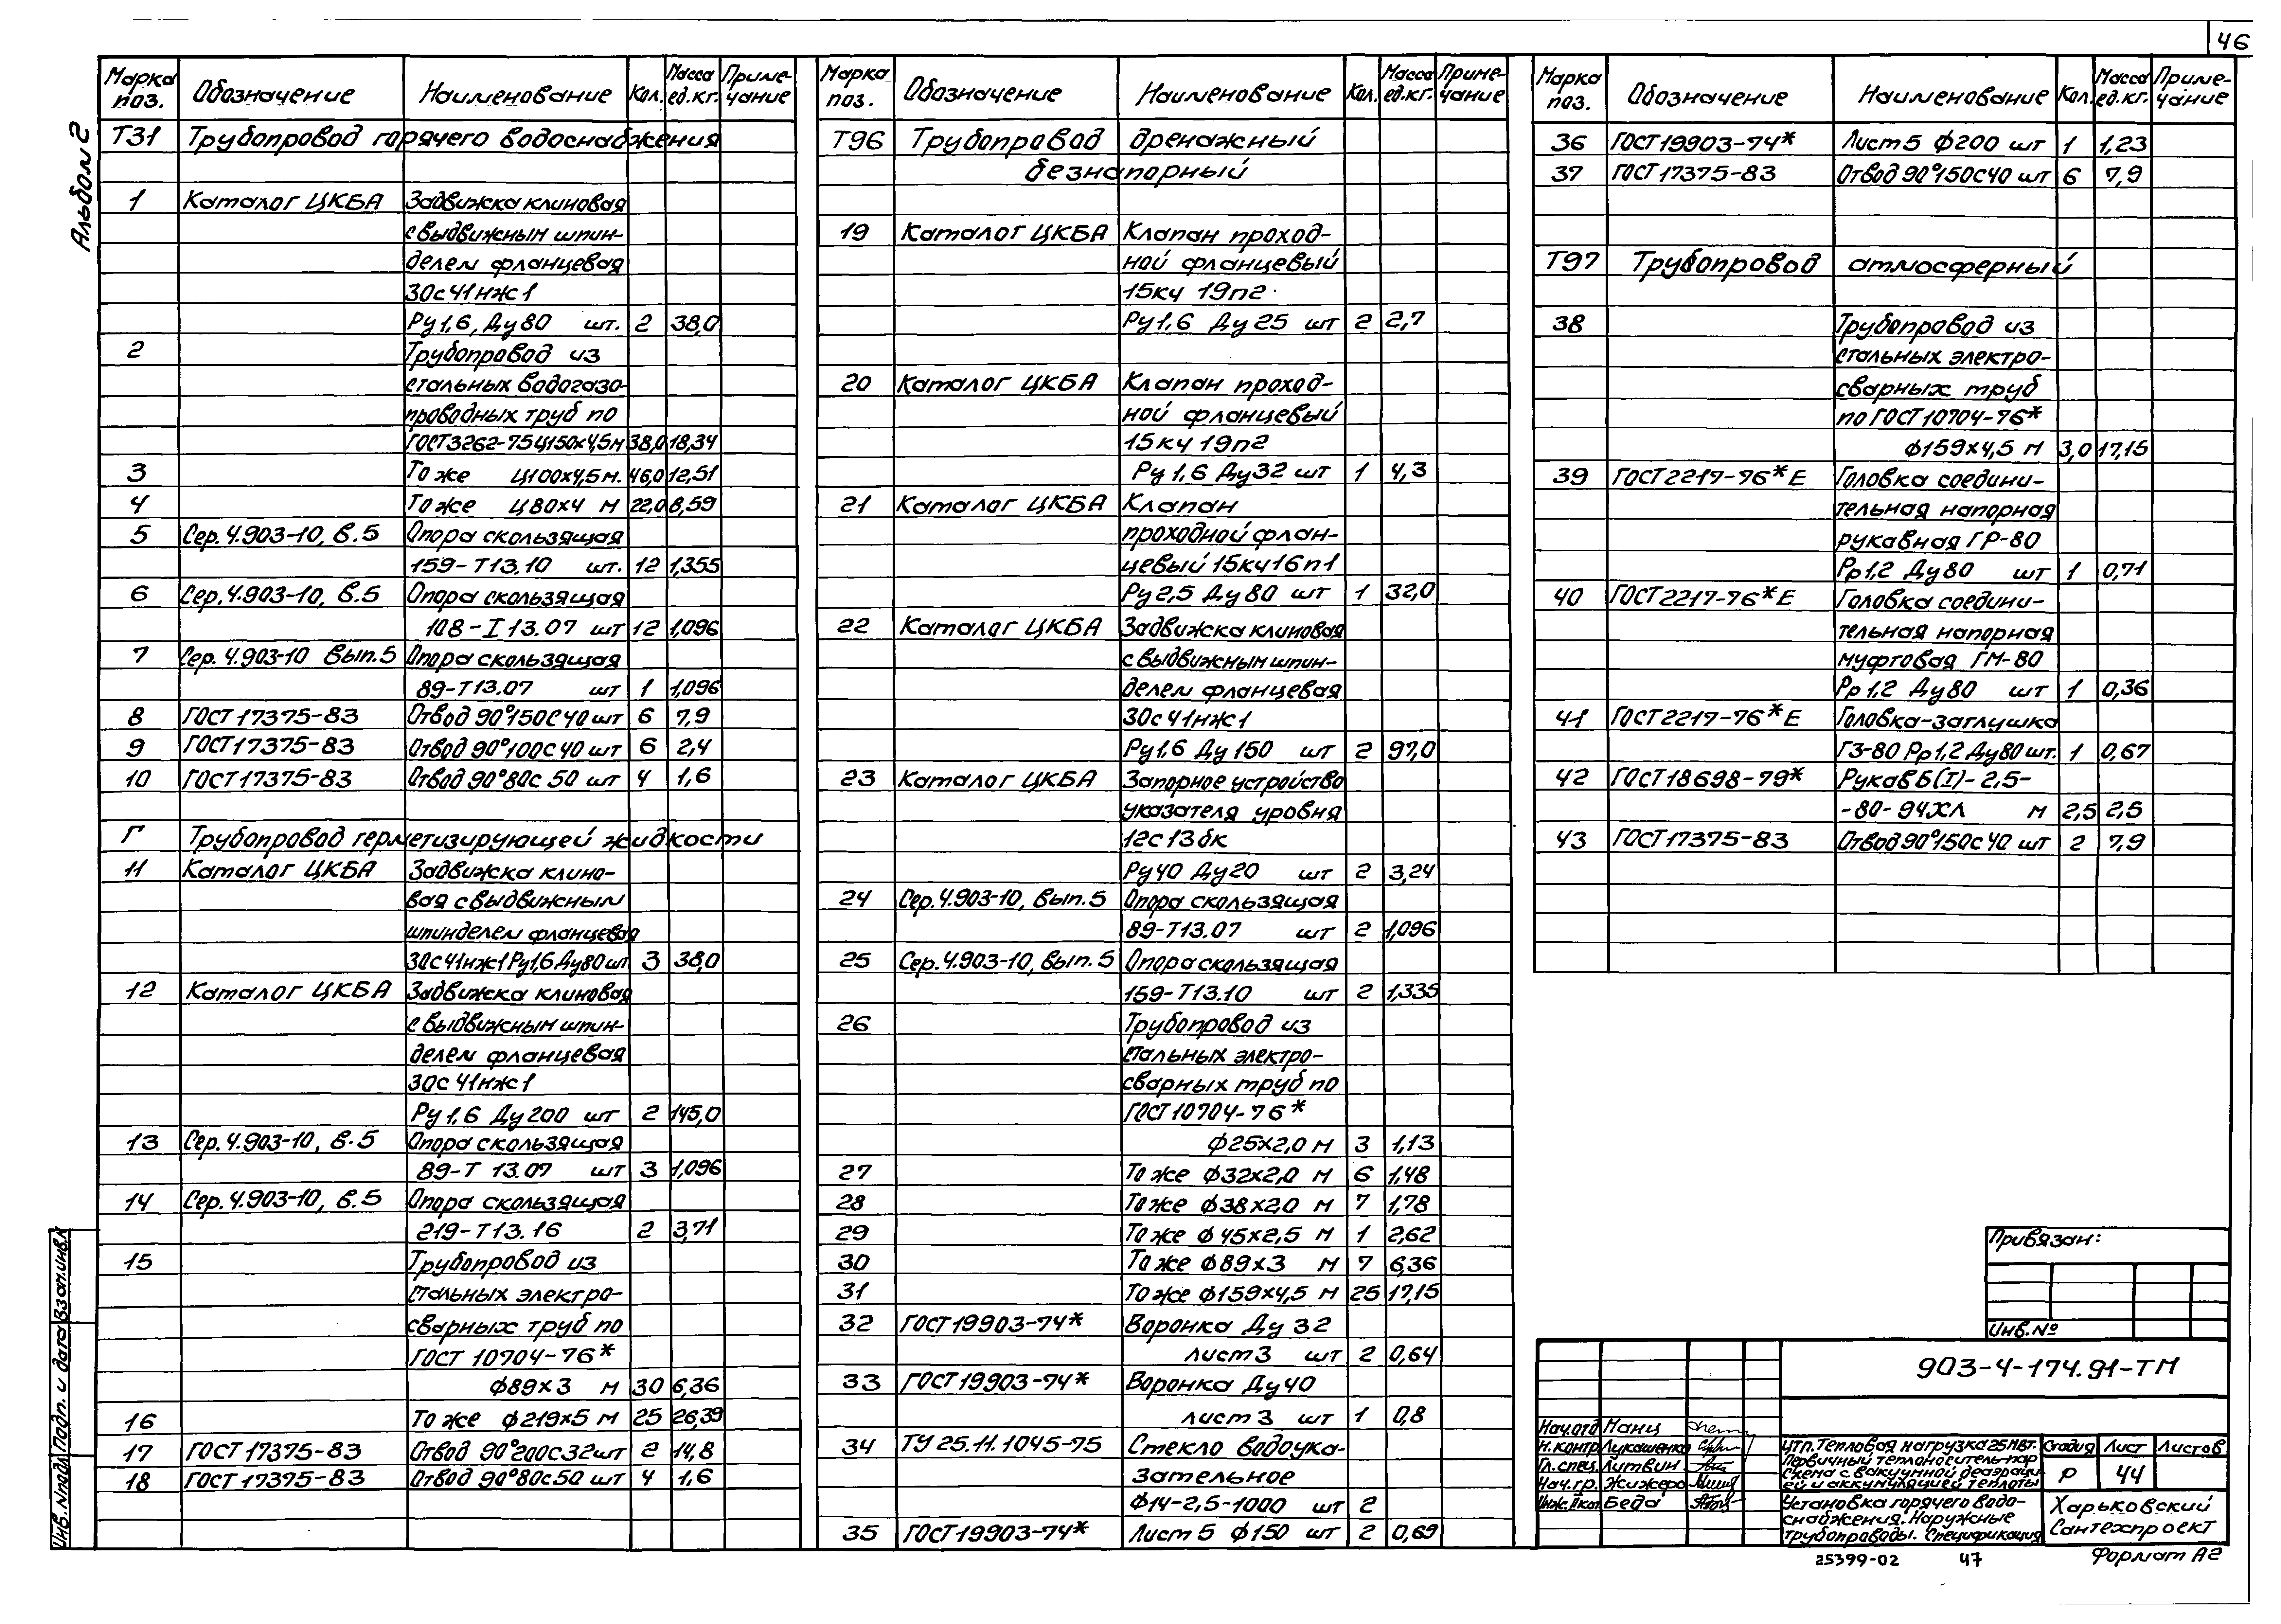 46
Альбом 2
Марка поз. Обозначение Наименование Кол. Масса ед.кг. Приме-чание
Т31 Трубопровод горячего водоснабжения
1 Каталог ЦКБА Задвижка клиновая
с выдвижным шпин-
делем фланцевая
30с41нж1
Ру1,6, Ду80 шт. 2 38,0
2 Трубопровод из
стальных водогазо-
проводных труб по
ГОСТ3262-75 Ц150х4,5м 38,0 18,34
3 То же Ц100х4,5м. 46,0 12,51
4 То же Ц80х4 м 22,0 8,59
5 Сер.4.903-10, в.5 Опора скользящая
159-Т13.10 шт. 12 1,355
6 Сер.4.903-10, в.5 Опора скользящая
108-I13.07 шт 12 1,096
7 Сер.4.903-10 Вып.5 Опора скользящая
89-Т13.07 шт 1 1,096
8 ГОСТ17375-83 Отвод 90°150С40 шт 6 7,9
9 ГОСТ17375-83 Отвод 90°100с40 шт 6 2,4
10 ГОСТ17375-83 Отвод 90°80с50 шт 4 1,6
Г Трубопровод герметизирующей жидкости
11 Каталог ЦКБА Задвижка клино-
вая с выдвижным
шпинделем фланцевая
30с41нж1 Ру1,6 Ду80 шт 3 38,0
12 Каталог ЦКБА Задвижка клиновая
с выдвижным шпин-
делем фланцевая
30с41нж1
Ру1,6 Ду200 шт 2 145,0
13 Сер.4.903-10, в.5 Опора скользящая
89-Т 13.07 шт 3 1,096
14 Сер.4.903-10, в.5 Опора скользящая
219-Т13.16 2 3,71
15 Трубопровод из
стальных электро-
сварных труб по
ГОСТ 10704-76*
ф89х3 м 30 6,36
16 То же ф219х5 м 25 26,39
17 ГОСТ17375-83 Отвод 90°200С32шт 2 14,8
18 ГОСТ17375-83 Отвод 90°80с50 шт 4 1,6
Марка поз. Обозначение Наименование Кол. Масса ед.кг. Приме-чание
Т96 Трубопровод дренажный
безнапорный
19 Каталог ЦКБА Клапан проход-
ной фланцевый
15кч 19п2
Ру1,6 Ду25 шт 2 2,7
20 Каталог ЦКБА Клапан проход-
ной фланцевый
15кч 19п2
Ру 1,6 Ду32 шт 1 4,3
21 Каталог ЦКБА Клапан
проходной флан-
цевый 15кч16п1
Ру2,5 Ду80 шт 1 32,0
22 Каталог ЦКБА Задвижка клиновая
с выдвижным шпин-
делем фланцевая
30с41нж1
Ру1,6 Ду150 шт 2 97,0
23 Каталог ЦКБА Запорное устройство
указателя уровня
12с13бк
Ру40 Ду20 шт 2 3,24
24 Сер.4.903-10, Вып.5 Опора скользящая
89-Т13.07 шт 2 1,096
25 Сер.4.903-10, Вып.5 Опора скользящая
159-Т13.10 шт 2 1,335
26 Трубопровод из
стальных электро-
сварных труб по
ГОСТ10704-76*
ф25х2,0 м 3 1,13
27 То же ф32х2,0 м 6 1,48
28 То же ф38х2,0 м 7 1,78
29 То же ф45х2,5 м 1 2,62
30 То же ф89х3 м 7 6,36
31 То же ф159х4,5 м 25 17,15
32 ГОСТ19903-74* Воронка Ду 32
лист3 шт 2 0,64
33 ГОСТ19903-74* Воронка Ду40
лист3 шт 1 0,8
34 ТУ 25.11.1045-75 Стекло водоука-
зательное
ф14-2,5-1000 шт 2
35 ГОСТ19903-74* Лист 5 ф150 шт 2 0,69
Марка поз. Обозначение Наименование Кол. Масса ед.кг. Приме-чание
36 ГОСТ19903-74* Лист5 ф200 шт 1 1,23
37 ГОСТ17375-83 Отвод 90°150С40 шт 6 7,9
Т97 Трубопровод атмосферный
38 Трубопровод из
стальных электро-
сварных труб
по ГОСТ10704-76*
ф159х4,5 м 3,0 17,15
39 ГОСТ2217-76*Е Головка соедини-
тельная напорная
рукавная ГР-80
Рр1,2 Ду80 шт 1 0,71
40 ГОСТ2217-76*Е Головка соедини-
тельная напорная
муфтовая ГМ-80
Рр1,2 Ду80 шт 1 0,36
41 ГОСТ2217-76*Е Головка-заглушка
ГЗ-80 Рр1,2 Ду80 шт. 1 0,67
42 ГОСТ18698-79* Рукав Б(I)-2,5-
-80-94ХЛ м 2,5 2,5
43 ГОСТ17375-83 Отвод 90°150с40 шт 2 7,9
Привязан:
Инв.№
903-4-174.91-ТМ
Нач.отд Манц
Н.контр Лукашенко
Гл.спец. Литвин
Нач.гр. Жижеро
Инж.IIкат Беда
ЦТП. Тепловая нагрузка 25МВт.
Первичный теплоноситель-пар
Схема с вакуумной деаэраци-
ей и аккумуляцией теплоты
Стадия Лист Листов
Р 44
Установка горячего водо-
снабжения. Наружные
трубопроводы. Спецификация
Харьковский
Сантехпроект
25399-02 47
Формат А2
Инв.№подл. Подп. и дата Взам.инв.№